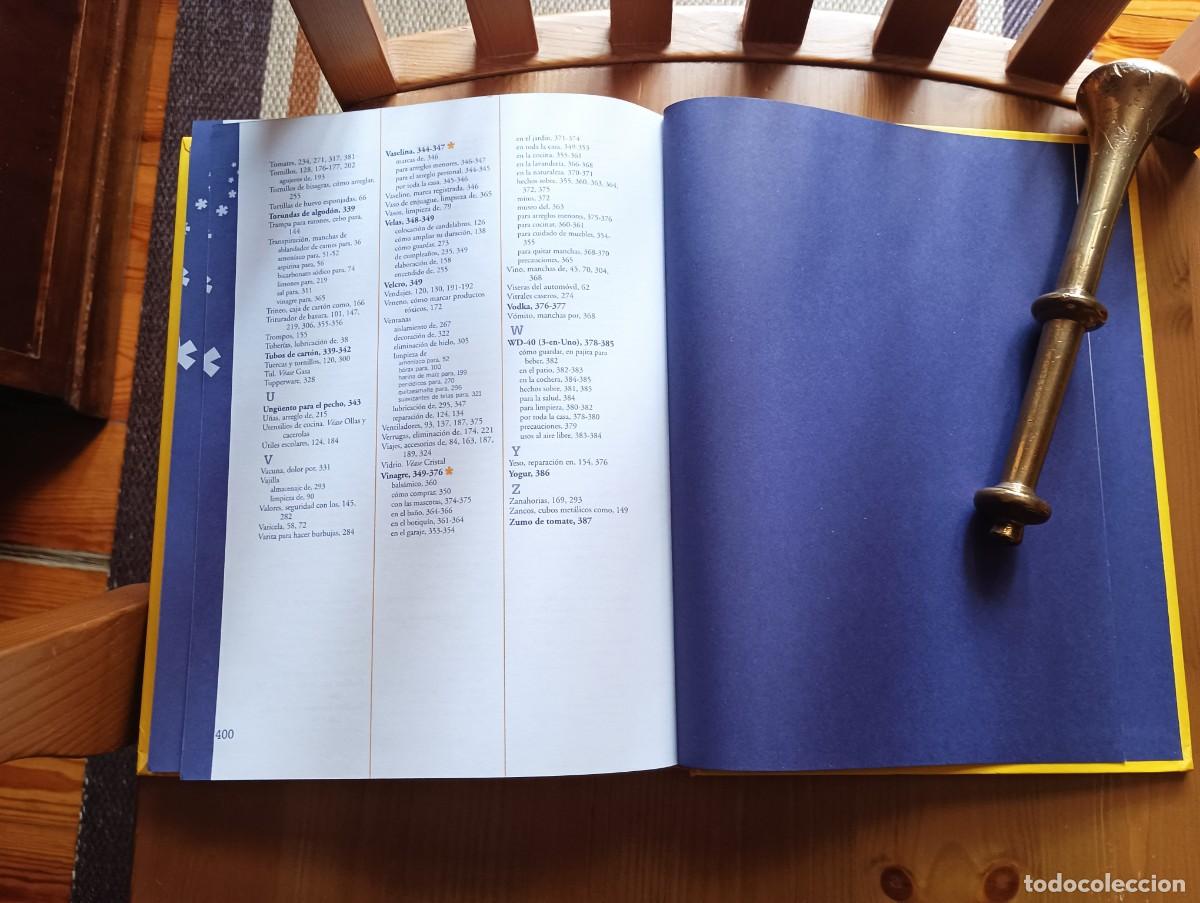 Tomates, 234, 271, 317, 381
Tornillos, 128, 176-177, 202
agujeros de, 193
Tornillos de bisagras, cómo arreglar,
255
Tortillas de huevo esponjadas, 66
Torundas de algodón, 339
Trampa para ratones, cebo para,
144
Transpiración, manchas de
ablandador de carnes para, 36
amoníaco para, 51-52
aspirina para, 56
bicarbonato sódico para, 74
limones para, 219
sal para, 311
vinagre para, 365
Trineo, caja de cartón como, 166
Triturador de basura, 101, 147,
219, 306, 355-356
Trompos, 155
Tuberías, lubricación de, 38
Tubos de cartón, 339-342
Tuercas y tornillos, 120, 300
Tul. Véase Gasa
Tupperware, 328
U
Ungüento para el pecho, 343
Uñas, arreglo de, 215
Utensilios de cocina. Véase Ollas y
cacerolas
Útiles escolares, 124, 184
V
Vacuna, dolor por, 331
Vajilla
almacenaje de, 293
limpieza de, 90
Valores, seguridad con los, 145,
282
Varicela, 58, 72
Varita para hacer burbujas, 284
400
Vaselina, 344-347 *
marcas de, 346
para arreglos menores, 346-347
para el arreglo personal, 344-345
por toda la casa, 345-346
Vaseline, marca registrada, 346
Vaso de enjuague, limpieza de, 365
Vasos, limpieza de, 79
Velas, 348-349
colocación de candelabros, 126
cómo ampliar su duración, 138
cómo guardar, 273
de cumpleaños, 235, 349
elaboración de, 158
encendido de, 255
Velcro, 349
Vendajes, 120, 130, 191-192
Veneno, cómo marcar productos
tóxicos, 172
Ventanas
aislamiento de, 267
decoración de, 322
eliminación de hielo, 305
limpieza de
amoníaco para, 52
bórax para, 100
harina de maíz para, 199
periódicos para, 270
quitaesmalte para, 296
suavizantes de telas para, 321
lubricación de, 295, 347
reparación de, 124, 134
Ventiladores, 93, 137, 187, 375
Verrugas, eliminación de, 174, 221
Viajes, accesorios de, 84, 163, 187,
189, 324
Vidrio. Véase Cristal
Vinagre, 349-376 *
balsámico, 360
cómo comprar, 350
con las mascotas, 374-375
en el baño, 364-366
en el botiquín, 361-364
en el garaje, 353-354
en el jardín, 371-374
en toda la casa, 349-353
en la cocina, 355-361
en la lavandería, 366-368
en la naturaleza, 370-371
hechos sobre, 355, 360, 363, 364,
372, 375
mitos, 372
museo del, 363
para arreglos menores, 375-376
para cocinar, 360-361
para cuidado de muebles, 354-
355
para quitar manchas, 368-370
precauciones, 365
Vino, manchas de, 45, 70, 304,
368
Viseras del automóvil, 62
Vitrales caseros, 274
Vodka, 376-377
Vómito, manchas por, 368
W
WD-40 (3-en-Uno), 378-385
cómo guardar, en pajita para
beber, 382
en el patio, 382-383
en la cochera, 384-385
hechos sobre, 381, 385
para la salud, 384
para limpieza, 380-382
por toda la casa, 378-380
precauciones, 379
usos al aire libre, 383-384
Y
Yeso, reparación en, 154, 376
Yogur, 386
Z
Zanahorias, 169, 293
Zancos, cubos metálicos como, 149
Zumo de tomate, 387
todocoleccion